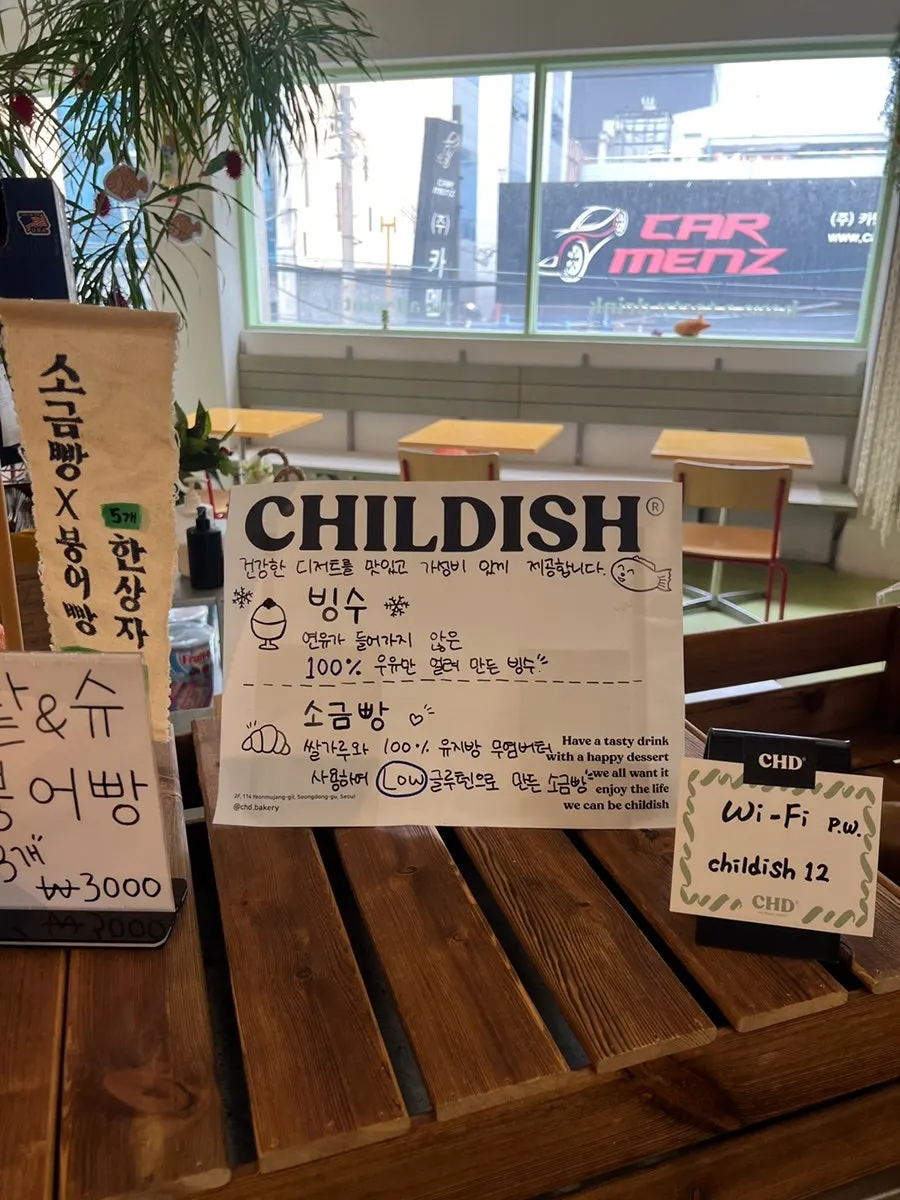 소금빵X붕어빵
5개
한상자
&슈
붕어빵
3개
₩3000
CHILDISH®
건강한 디저트를 맛있고 가성비 있게 제공합니다.
빙수
연유가 들어가지 않은
100% 우유만 얼려 만든 빙수
소금빵
쌀가루와 100% 유지방 무염버터
사용하여 Low 글루틴으로 만든 소금빵
Have a tasty drink
with a happy dessert
we all want it
enjoy the life
we can be childish
2F, 114 Yeonmujang-gil, Seongdong-gu, Seoul
@chd.bakery
CHD
Wi-Fi P.W.
childish 12
CHD
CAR
MENZ
(주) 카
CAR
MENZ
(주) 카
www.ca